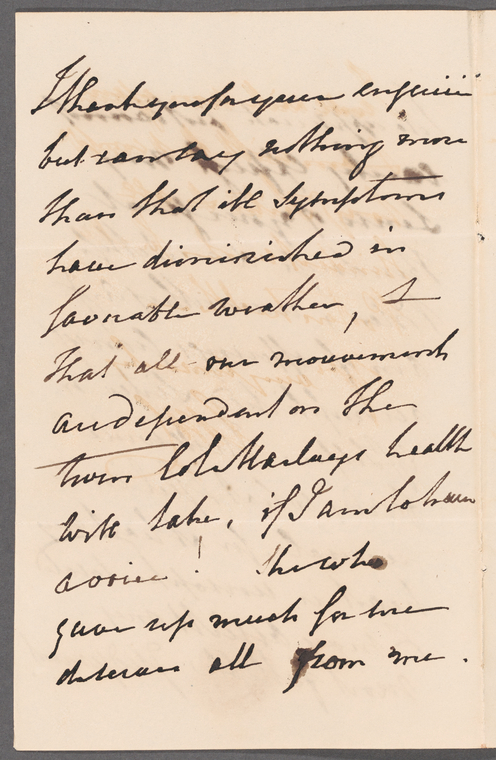 I thank you for your enquiries
but can say nothing more
than that ill symptoms
have diminished in
favorable weather, &
that all our movements
are dependent on the
turn Col. Hardings health
will take, if I am to have
a voice! He who
gave up much for me
deserves all from me.